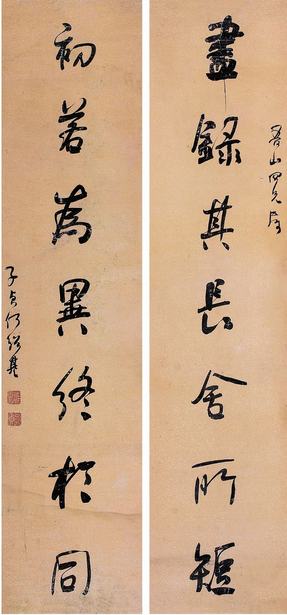 山四兄屬
盡錄其長舍所短
初若為異終於同
子貞何紹基